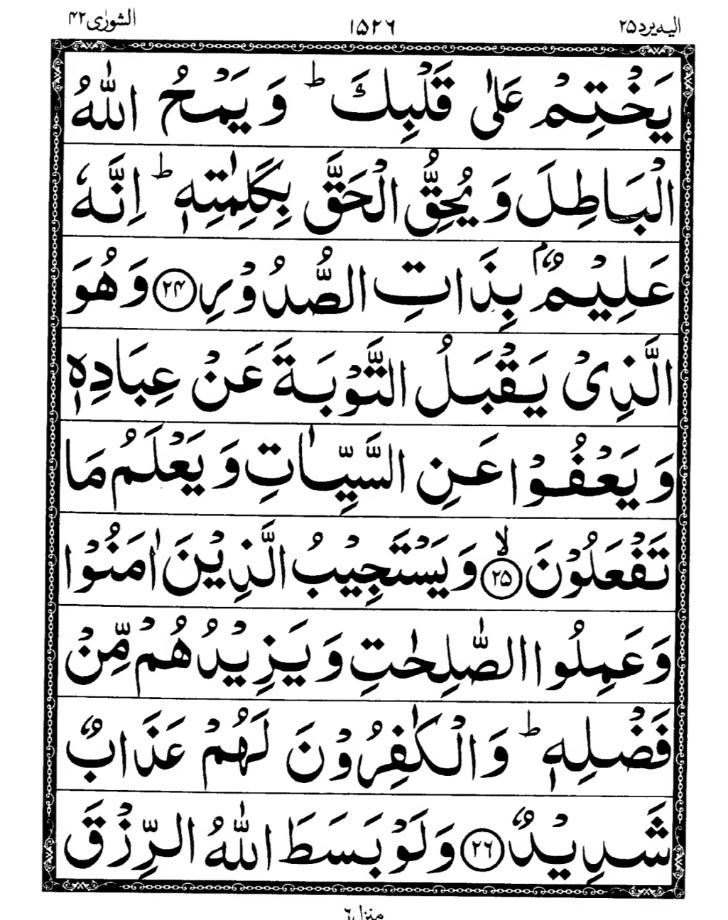 الیه یرد ۲۵ ۱۵۲۶ الشورٰی ۴۲
یَخْتِمْ عَلٰی قَلْبِكَ ؕ وَ یَمْحُ اللّٰهُ
الْبَاطِلَ وَ یُحِقُّ الْحَقَّ بِكَلِمٰتِهٖ ؕ اِنَّهٗ
عَلِیْمٌۢ بِذَاتِ الصُّدُوْرِ ﴿۲۴﴾ وَ هُوَ
الَّذِیْ یَقْبَلُ التَّوْبَةَ عَنْ عِبَادِهٖ
وَ یَعْفُوْا عَنِ السَّیِّاٰتِ وَ یَعْلَمُ مَا
تَفْعَلُوْنَ ﴿ۙ۲۵﴾ وَ یَسْتَجِیْبُ الَّذِیْنَ اٰمَنُوْا
وَ عَمِلُوا الصّٰلِحٰتِ وَ یَزِیْدُهُمْ مِّنْ
فَضْلِهٖ ؕ وَ الْكٰفِرُوْنَ لَهُمْ عَذَابٌ
شَدِیْدٌ ﴿۲۶﴾ وَ لَوْ بَسَطَ اللّٰهُ الرِّزْقَ
منزل ۶